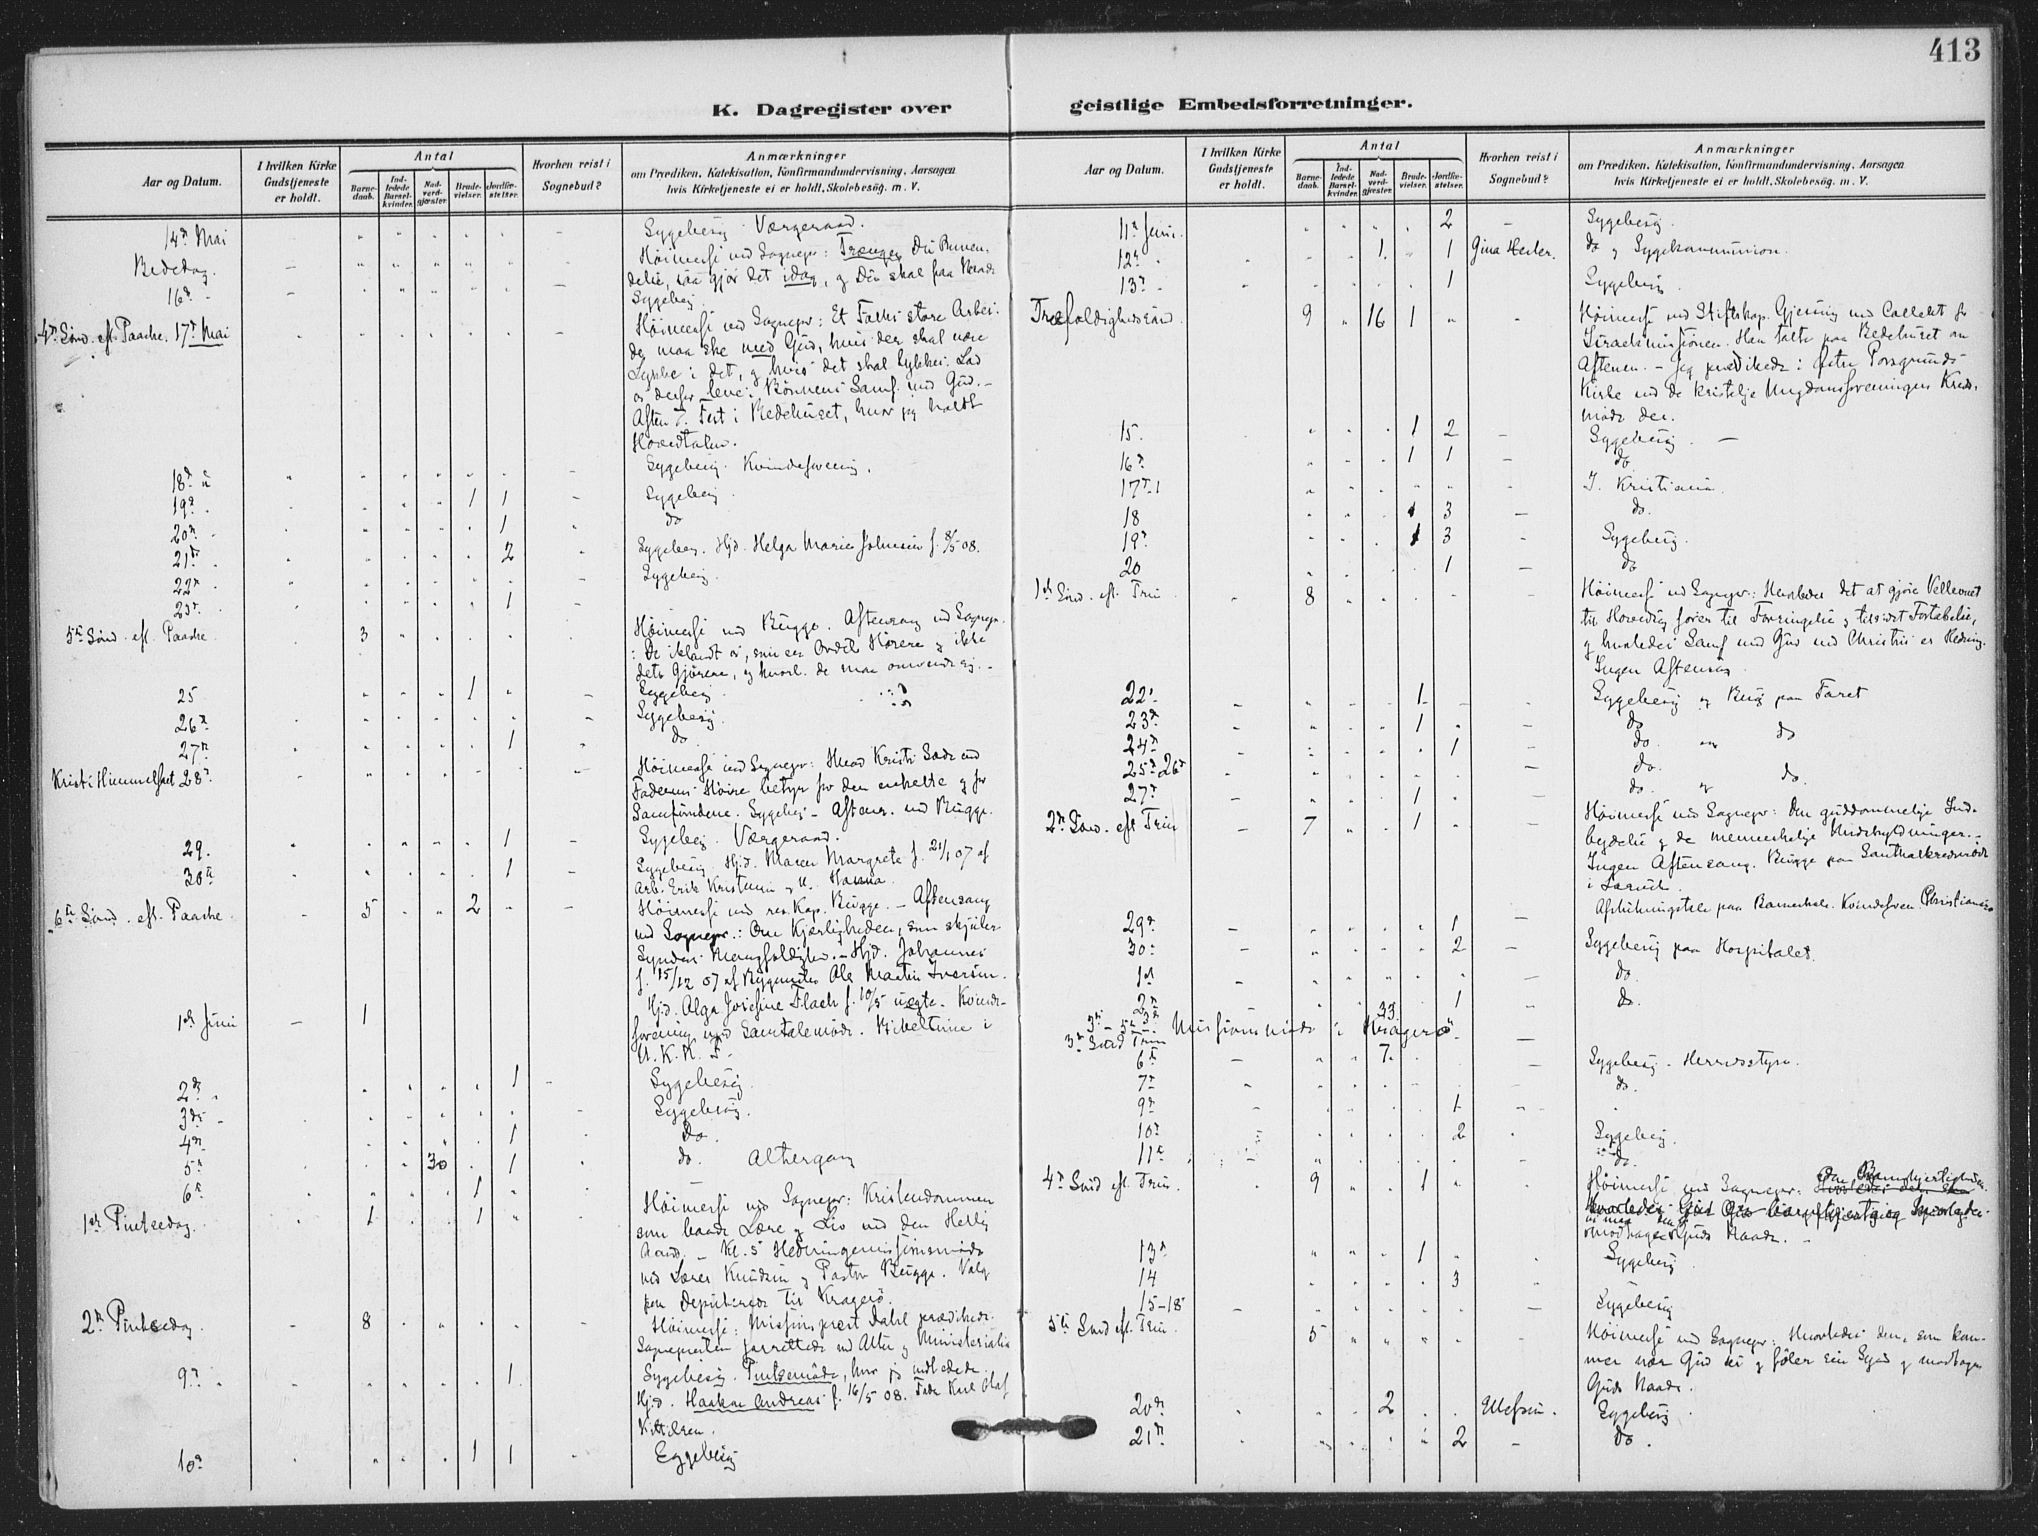 413
K. Dagregister over
Aar og Datum.
I hvilken Kirke
Gudstjeneste
er holdt.
Antal
Barne-
daab.
Ind-
ledede
Barsel-
kvinder.
Nad-
verd-
gjæster.
Brude-
vielser.
Jordfæ-
stelser.
Hvorhen reist i
Sognebud?
Anmærkninger
om Prædiken, Katekisation, Konfirmandundervisning, Aarsagen
hvis Kirketjeneste ei er holdt, Skolebesøg. m. V.
14d Mai Sygebesøg. Værgeraad.
Bededag. Høimesse ved Sognepr: Trænger Du Barmhjer
delse, saa gjør det idag, og Du skal faa Naade
16d Sygebesøg.
4d Sønd. eft. Paaske. 17d Mai Høimesse ved Sognepr: Et Folks store Arbei-
de maa ske med Gud, hvis der skal være
Lykke i det, og hvis det skal lykkes. Lad
os derfor leve i Bønnens Samf. med Gud. -
Aften 7. Fest i Bedehuset, hvor jeg holdt
Hovedtalen.
18d Sygebesøg. Kvindeforening.
19d 1 1 Sygebesøg.
20d 1 do
21d 2 Sygebesøg. Hjd. Helga Marie Johnsen f. 8/5 08.
22d Sygebesøg.
23d 1
5te Sønd. eft. Paaske 3 Høimesse ved Bugge. Aftensang ved Sognepr.
: De iblandt os, som er Ordets Hørere og ikke
dets Gjørere, og hvorl. de maa omvende sig. -
25 1 Sygebesøg
26d Sygebesøg.
27d 1 do
Kristi Himmelfart 28d Høimesse ved Sognepr: Hvad Kristi Sæde ved
Faderens Høire betyr for den enkelte og for
Samfundene. Sygebes - Aftens. ved Bugge.
29. 1 Sygebesøg. Værgeraad.
30te 1 Sygebesøg. Hjd. Maren Margrete f. 21/1 07 af
Arb. Erik Kristensen og H. Hanna.
6te Sønd. eft. Paaske. 5 2 Høimesse ved res. Kap. Bugge. - Aftensang
ved Sognepr.: Om Kjærligheden, som skjuler
Syndens Mangfoldighed. - Hjd. Johannes
f. 15/12 07 af Bygmester Ole Martin Iversen.
1ste Juni 1 Hjd. Alga Josefine Flach f. 10/5 uægte. Kvinde-
forening med Samtalemøde. Bibeltime i
U.K.K.F.
2de 1 Sygebesøg.
3de Sygebesøg.
4de 1 do.
5te 30 1 do. Altergang
6te 1
1ste Pintsedag. 1 1 Høimesse ved Sognepr: Kristendommen
som baade Lære og Liv ved den Hellig
Aand. - Kl. 5 Hedningemissionsmøde
ved Lærer Knudsen og Pastor Bugge. Valg
paa Deputerede til Kragerø.
2den Pintsedag. 8 Høimesse: Missionsprest Dahl prædikede.
Sognepresten forrettede ved Alter og Ministerialia
9de 1 Sygebesøg. Pintsemøde, hvor jeg indledede.
Hjd. Haakon Andreas f. 16/5 08. Fader Karl Olaf
Kittilsen.
10de 1 1 Sygebesøg
geistlige Embedsforretninger.
Aar og Datum.
I hvilken Kirke
Gudstjeneste
er holdt.
Antal
Barne-
daab.
Ind-
ledede
Barsel-
kvinder.
Nad-
verd-
gjæster.
Brude-
vielser.
Jordfæ-
stelser.
Hvorhen reist i
Sognebud?
Anmærkninger
om Prædiken, Katekisation, Konfirmandundervisning, Aarsagen
hvis Kirketjeneste ei er holdt, Skolebesøg. m. V.
11te Juni. 2 Sygebesøg.
12te 1 1 Gina do og Sygekommunion.
13de 1 Sygebesøg
Trefoldighedssønd. 9 16 1 Høimesse ved Stiftskap. Gjessing med Collekt for
Israelsmissionen. Han talte paa Bedehuset om
Aftenen. - Jeg prædikede i Østre Porsgrunds
Kirke ved de kristelige Ungdomsforeningers Kreds-
møde der.
15. 1 2 Sygebesøg. -
16de 1 1 do
17de I Kristiania.
18 1 3 do.
19de 1 3 Sygebesøg.
20 1 do
1ste Sønd. eft. Trin 8 Høimesse ved Sognepr: Hvorledes det at gjøre Vellevnet
til Hovedsag fører til Forringelse og tilsidst Fortabelse,
og hvorledes Samf. med Gud ved Christus er Redning.
Ingen Aftensang
22de 1 Sygebesøg og Besøg paa Foret
23de 1 do do
24de 1 do. do
25de 26de do.
27de 1 do. og do.
2den Sønd. eft. Trin 7 1 Høimesse ved Sognepr: Den guddommelige Ind-
bydelse og de menneskelige Undskyldninger. -
Ingen Aftensang. Bugge paa Santhalkredsmøde
i Larvik.
29de 1 Afslutningstale paa Kvindeforen. Christiania
30te 2 Sygebesøg paa Hospitalet.
1ste do
2den 1 do.
3die - 5te 33 Missionsmøde i Kragerø
3die Sønd Trin
6te 7 Sygebesøg - Herredsstyre.
7de do.
9de 1
10de 2 Sygebesøg.
11te do.
4de Sønd eft. Trin. 9 1 Høimesse ved Sognepr: Om Barmhjertighed
vi maa modtage Guds Naade.
13de 1 Sygebesøg
14 3
15-18 Sygebesøg
5te Sønd eft. Trin. 5 Høimesse ved Sognepr: Hvorledes den, som kom-
mer nær Gud ser og føler sin Synd og modtager
Guds Naade.
20de 2 Ellefsen. Sygebesøg
21de 2 do.